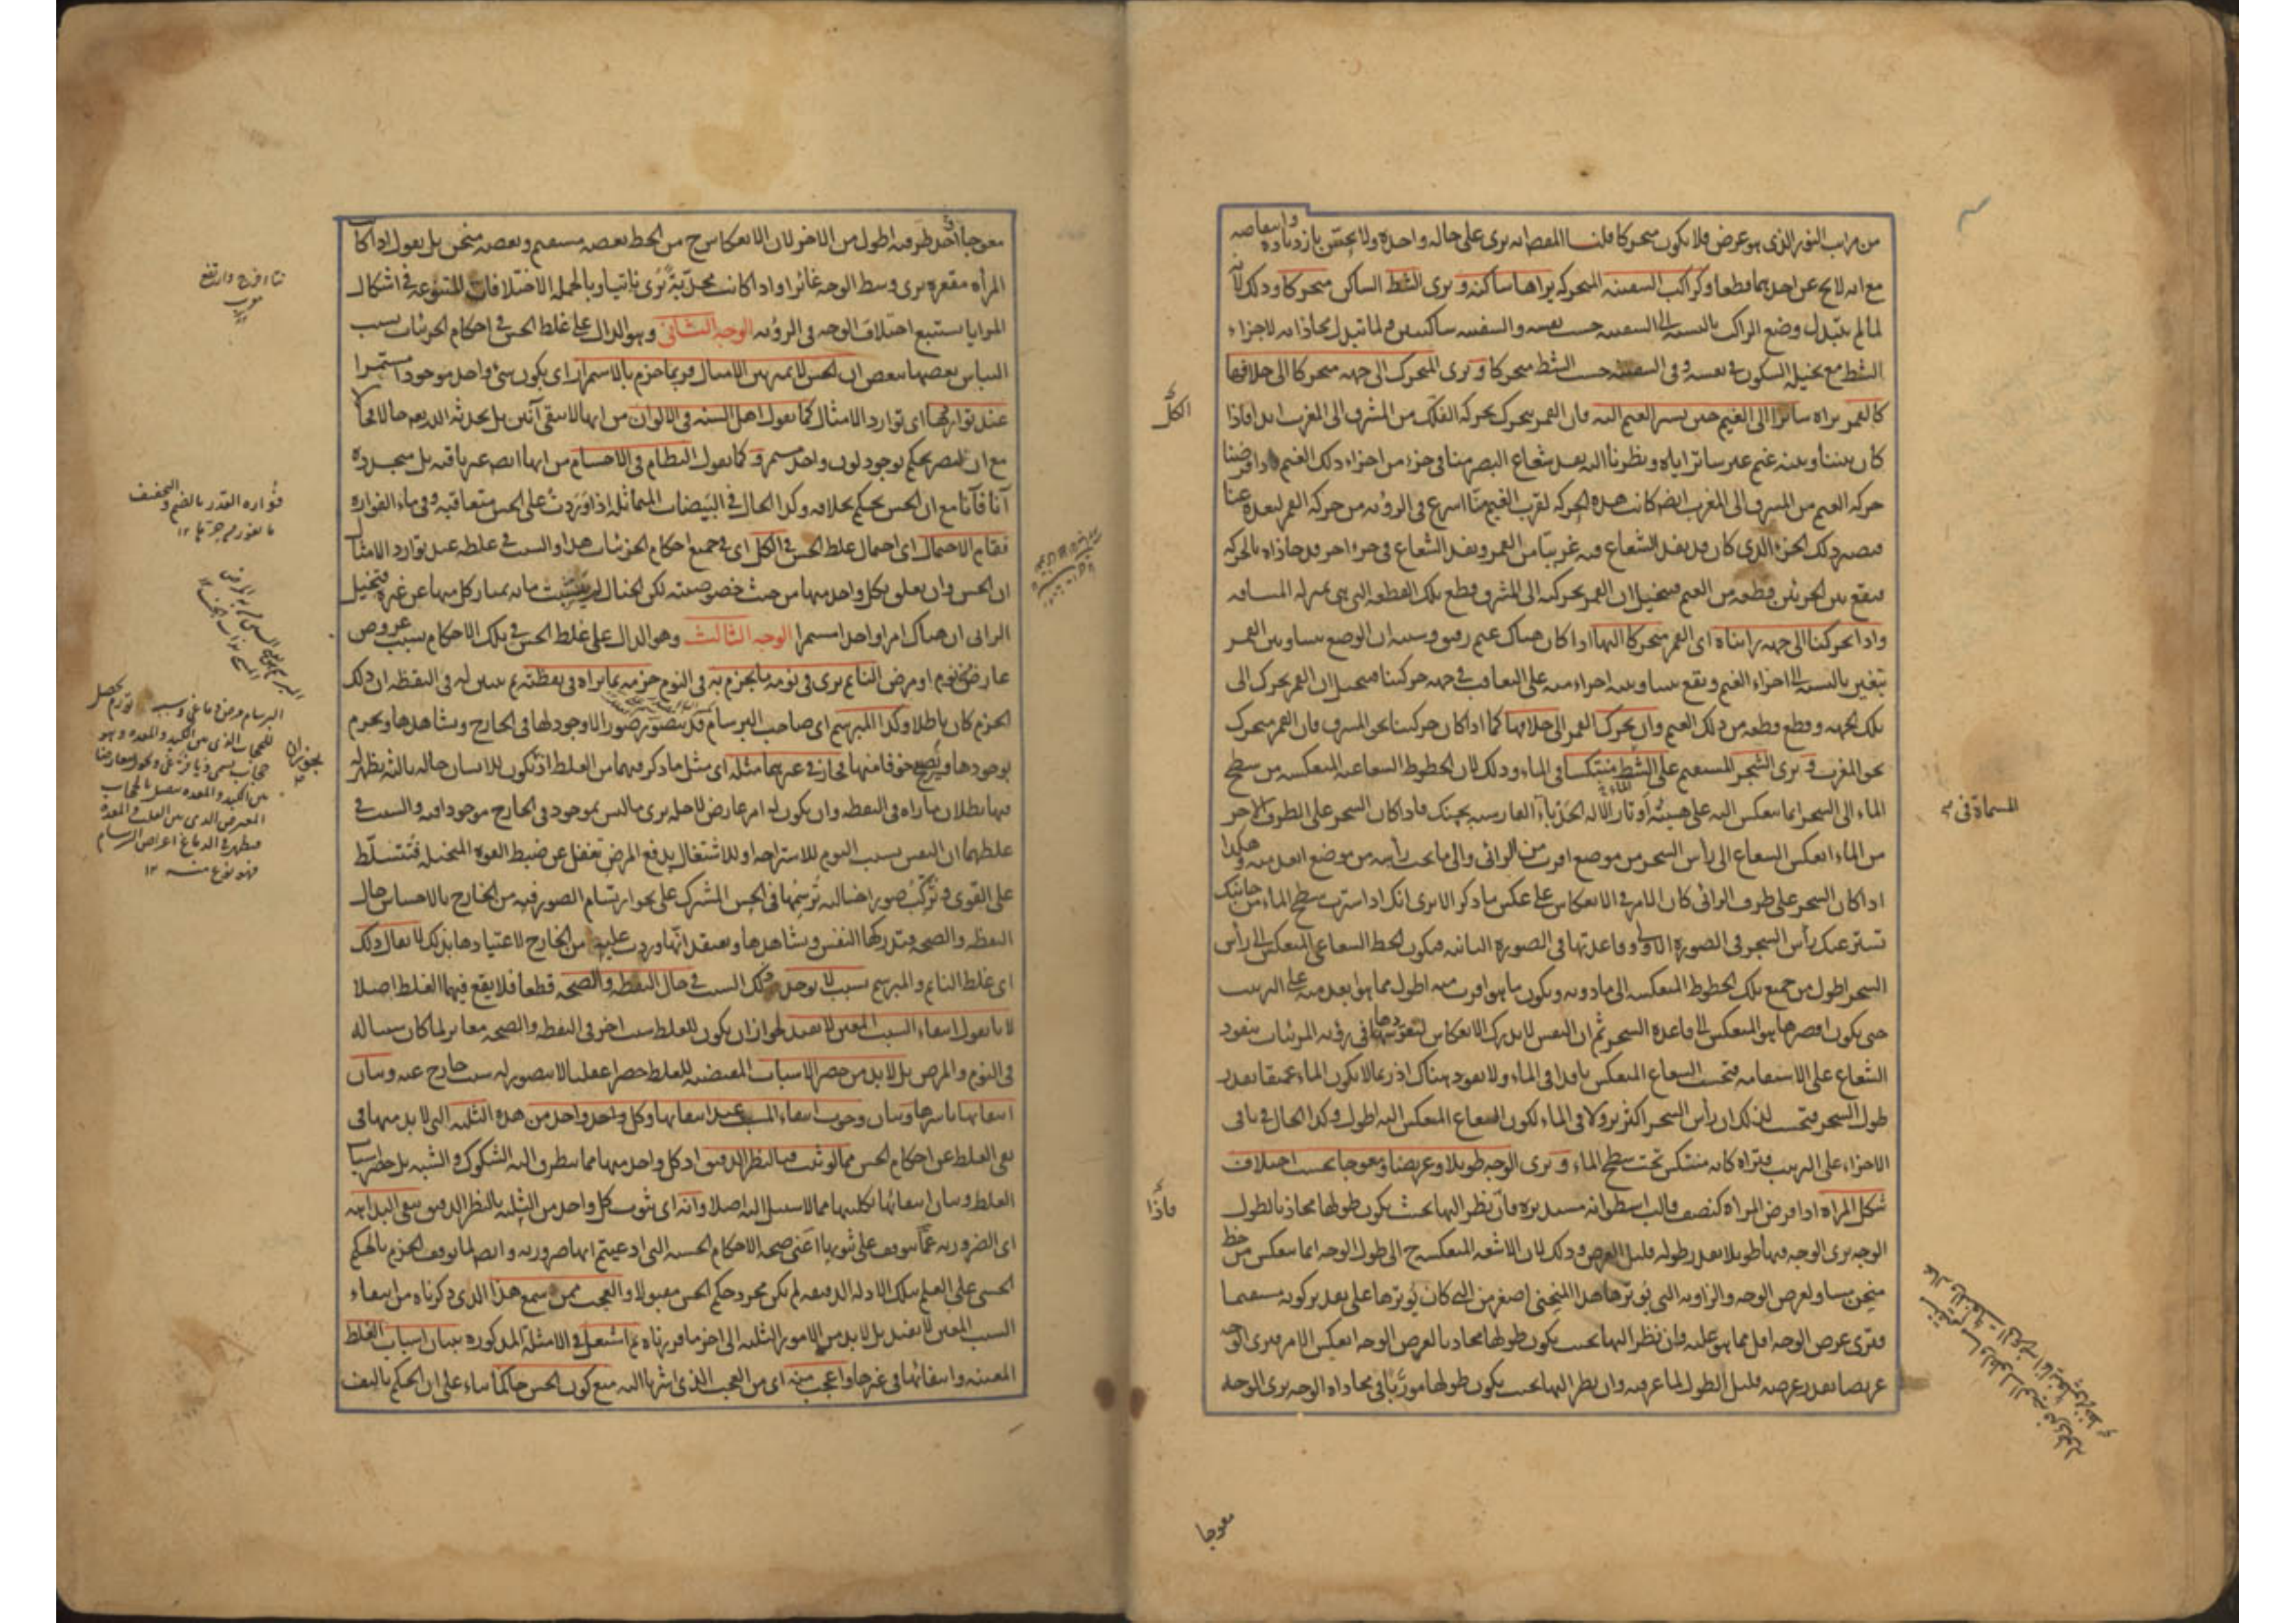 من مراتب النور الذى هو عرض فلا يكون متحركا قلنا المقصود انه يرى على حالة واحدة ولا يحس بازدياده وانتقاصه
مع انه لا يخ عن احدهما قطعا وكراكب السفينة المتحركة يراها ساكنة ويرى الشط الساكن متحركا وذلك لانه
لما لم يتبدل وضع الراكب بالنسبة الى السفينة حسب نفسه والسفينة ساكنين ولما تبدل محاذاته لاجزاء
الشط مع تخيله السكون فى نفسه وفى السفينة حسب الشط متحركا ويرى المتحرك الى جهة متحركا الى خلافها
كالقمر نراه سائرا الى الغيم حين يسير الغيم اليه فان القمر يتحرك بحركة الفلك من المشرق الى المغرب ابدا فاذا
كان بيننا وبينه غيم غير ساتر اياه ونظرنا اليه نفد شعاع البصر منا فى جزء من اجزاء ذلك الغيم وافرضنا
حركة الغيم من المشرق الى المغرب ايضا كانت هذه الحركة لقرب الغيم منا اسرع فى الرؤية من حركة القمر لبعده عنا
فيصير ذلك الجزء الذى كان قد نفد الشعاع فيه غربيا من القمر ونفد الشعاع فى جزء اخر قد حاذاه بالحركة
فيقع بين الجزئين قطعة من الغيم فيتخيل ان القمر بحركته الى المشرق قطع تلك القطعة التى هى بمنزلة المسافة
واذا تحركنا الى جهة رايناه اى القمر متحركا اليها اذا كان هناك غيم رقيق وسببه ان الوضع بيننا وبين القمر
يتغير بالنسبة الى اجزاء الغيم ويقع بيننا وبينه اجزاء منه على التعاقب فى جهة حركتنا فيتخيل ان القمر يحرك الى
تلك الجهة وقطع قطعة من ذلك الغيم وان تحرك القمر الى خلافها كما اذا كان حركتنا نحو المشرق فان القمر متحرك
نحو المغرب ويرى الشجر المستقيم على الشط منتكسا فى الماء وذلك لان الخطوط الشعاعية المنعكسة من سطح
الماء الى الشجر انما ينعكس اليه على هيئة اوتار الآلة الحدباء الفارسية بچنك فاذا كان الشجر على الطرف الاخر
من الماء انعكس الشعاع الى رأس الشجر من موضع اقرب من الرائى والى ما تحت رأسه من موضع ابعد منه وهكذا
اذا كان الشجر على طرف الرائى كان الامر فى الانعكاس على عكس ما ذكر الا يرى انك اذا سترت سطح الماء من جانبك
تستر عنك رأس الشجر فى الصورة الاولى وقاعدتها فى الصورة الثانية فيكون الخط الشعاعى المنعكس الى رأس
الشجر اطول من جميع تلك الخطوط المنعكسة الى ما دونه ويكون ما هو اقرب منه اطول مما هو ابعد منه على الترتيب
حتى يكون اقصرها هو المنعكس الى قاعدة الشجر ثم ان النفس لا يدرك الانعكاس لتعودها فى رؤية المرئيات بنفود
الشعاع على الاستقامة فتحسب الشعاع المنعكس نافدا فى الماء ولا نفود هناك اذ ربما لا يكون الماء عميقا بقدر
طول الشجر فتحسب لذلك ان رأس الشجر اكثر نزولا فى الماء لكون الشعاع المنعكس اليه اطول وكذا الحال فى باقى
الاجزاء على الترتيب فتراه كانه منتكس تحت سطح الماء ويرى الوجه طويلا وعريضا ومعوجا بحسب اختلاف
شكل المراة اذا فرض المراة كنصف قالب اسطوانة مستديرة فان نظر اليها بحيث يكون طولها محاذيا لطول
الوجه يرى الوجه فيها طويلا بقدر طوله قليل العرض وذلك لان الاشعة المنعكسة ح الى طول الوجه انما ينعكس من خط
منحن مساو لعرض الوجه والزاوية التى يوترها هذا المنحنى اصغر من التى كان يوترها على تقدير كونه مستقيما
فيرى عرض الوجه اقل مما هو عليه وان نظر اليها بحيث يكون طولها محاذيا لعرض الوجه انعكس الامر فيرى الوجه
عريضا بقدر عرضه قليل الطول لما عرفت وان نظر اليها بحيث يكون طولها مورّبا فى محاذاة الوجه يرى الوجه
الكلّ
فاذا
المسماة فى
معوجا
معوجا احد طرفيه اطول من الاخر لان الانعكاس ح من الخط بعضه مستقيم وبعضه منحن بل نقول اذا كان
المرأة مقعرة يرى وسط الوجه غائرا واذا كانت محدّبة يُرى ناتيا وبالجملة الاختلافات المتنوعة فى اشكال
المرايا يستتبع اختلاف الوجه فى الرؤية الوجه الثانى وهو الدال على غلط الحس فى احكام الجزئيات بسبب
التباس بعضها ببعض ان الحس لا يميز بين الامثال فربما جزم بالاستمرار اى بكون شئ واحد موجودا مستمرا
عند تواردها اى توارد الامثال كما يقول اهل السنة فى الالوان من انها لا يبقى آنين بل يحدثه الله تعه حالا فحالا
مع ان البصر يحكم بوجود لون واحد مستمر و كما يقول النظام فى الاجسام من انها ايضا غير باقية بل متجددة
آنا فآنا مع ان الحس يحكم بخلافه وكذا الحال فى البيضات المتماثلة اذا وردت على الحس متعاقبة وفى ماء الفوارة
فقام الاحتمال اى احتمال غلط الحس فى الكل اى فى جميع احكام الجزئيات هذا والسبب فى غلطه عند توارد الامثال
ان الحس وان تعلق بكل واحد منها من حيث خصوصيته لكن الخيال لم يستثبت ما به يمتاز كل منها عن غيره فيتخيل
الرائى ان هناك امرا واحدا مستمرا الوجه الثالث وهو الدال على غلط الحس فى تلك الاحكام بسبب عروض
عارض من نوم او مرض النائم يرى فى نومه ما يجزم به فى النوم جزمه بما يراه فى يقظته ثم يتبين له فى اليقظة ان ذلك
الجزم كان باطلا وكذا المبرسم اى صاحب البرسام قد يتصور صورا لا وجود لها فى الخارج ويشاهدها ويجزم
بوجودها ويصيح خوفا منها فجاز فى غيرهما مثله اى مثل ما ذكر فيهما من الغلط اذ يكون للانسان حالة ثالثة يظهر له
فيها بطلان ما راه فى اليقظة وان يكون له امر عارض لاجله يرى ما ليس بموجود فى الخارج موجودا فيه والسبب فى
غلطهما ان النفس بسبب النوم للاستراحة او للاشتغال بدفع المرض تغفل عن ضبط القوة المتخيلة فتتسلّط
على القوى وتركّب صورا خيالية ترسمها فى الحس المشترك على نحو ارتسام الصور فيه من الخارج بالاحساس حال
اليقظة والصحة فتدركها النفس وتشاهدها وتعتقد انّها وردت عليه من الخارج لاعتيادها بذلك لا يقال ذلك
اى غلط النائم والمبرسم بسبب لا يوجد ذلك السبب فى حال اليقظة والصحة قطعا فلا يقع فيهما الغلط اصلا
لانا نقول انتفاء السبب المعين لا يفيد لجواز ان يكون للغلط سبب اخر فى اليقظة والصحة مغاير لما كان سببا له
فى النوم والمرض بل لابد من حصر الاسباب المقتضية للغلط حصرا عقليا لا يتصور له سبب خارج عنه وبيان
انتفائها باسرها وبيان وجوب انتفاء المسبب عند انتفائها وكل واحد واحد من هذه الثلثة التى لابد منها فى
نفى الغلط عن احكام الحس مما لو ثبت فبالنظر الدقيق اذ كل واحد منها مما يتطرق اليه الشكوك والشبه بل حصر اسباب
الغلط وبيان انتفائها بكليتها مما لا سبيل اليه اصلا وانه اى ثبوت كل واحد من الثلثة بالنظر الدقيق ينفى البداهة
اى الضرورية عما يتوقف على ثبوتها اعنى صحة الاحكام الحسية التى ادعيتم انها ضرورية وايضا لما توقف الجزم بالحكم
الحسى على العلم بتلك الادلة الدقيقة لم يكن مجرد حكم الحس مقبولا والعجب ممن سمع هذا الذى ذكرناه من انتفاء
السبب المعين لا يفيد بل لابد من الامور الثلثة الى اخر ما قررناه ثم اشتغل فى الامثلة المذكورة ببيان اسباب الغلط
المعينة وانتفائها فى غيرها واعجب منه اى من العجب الذى اشرنا اليه منع كون الحس حاكما بناء على ان الحكم تاليف
نتاء خرج وارتفع
معرب
فواره القدر بالضم والتخفيف
ما يفور من حرّها ١٢